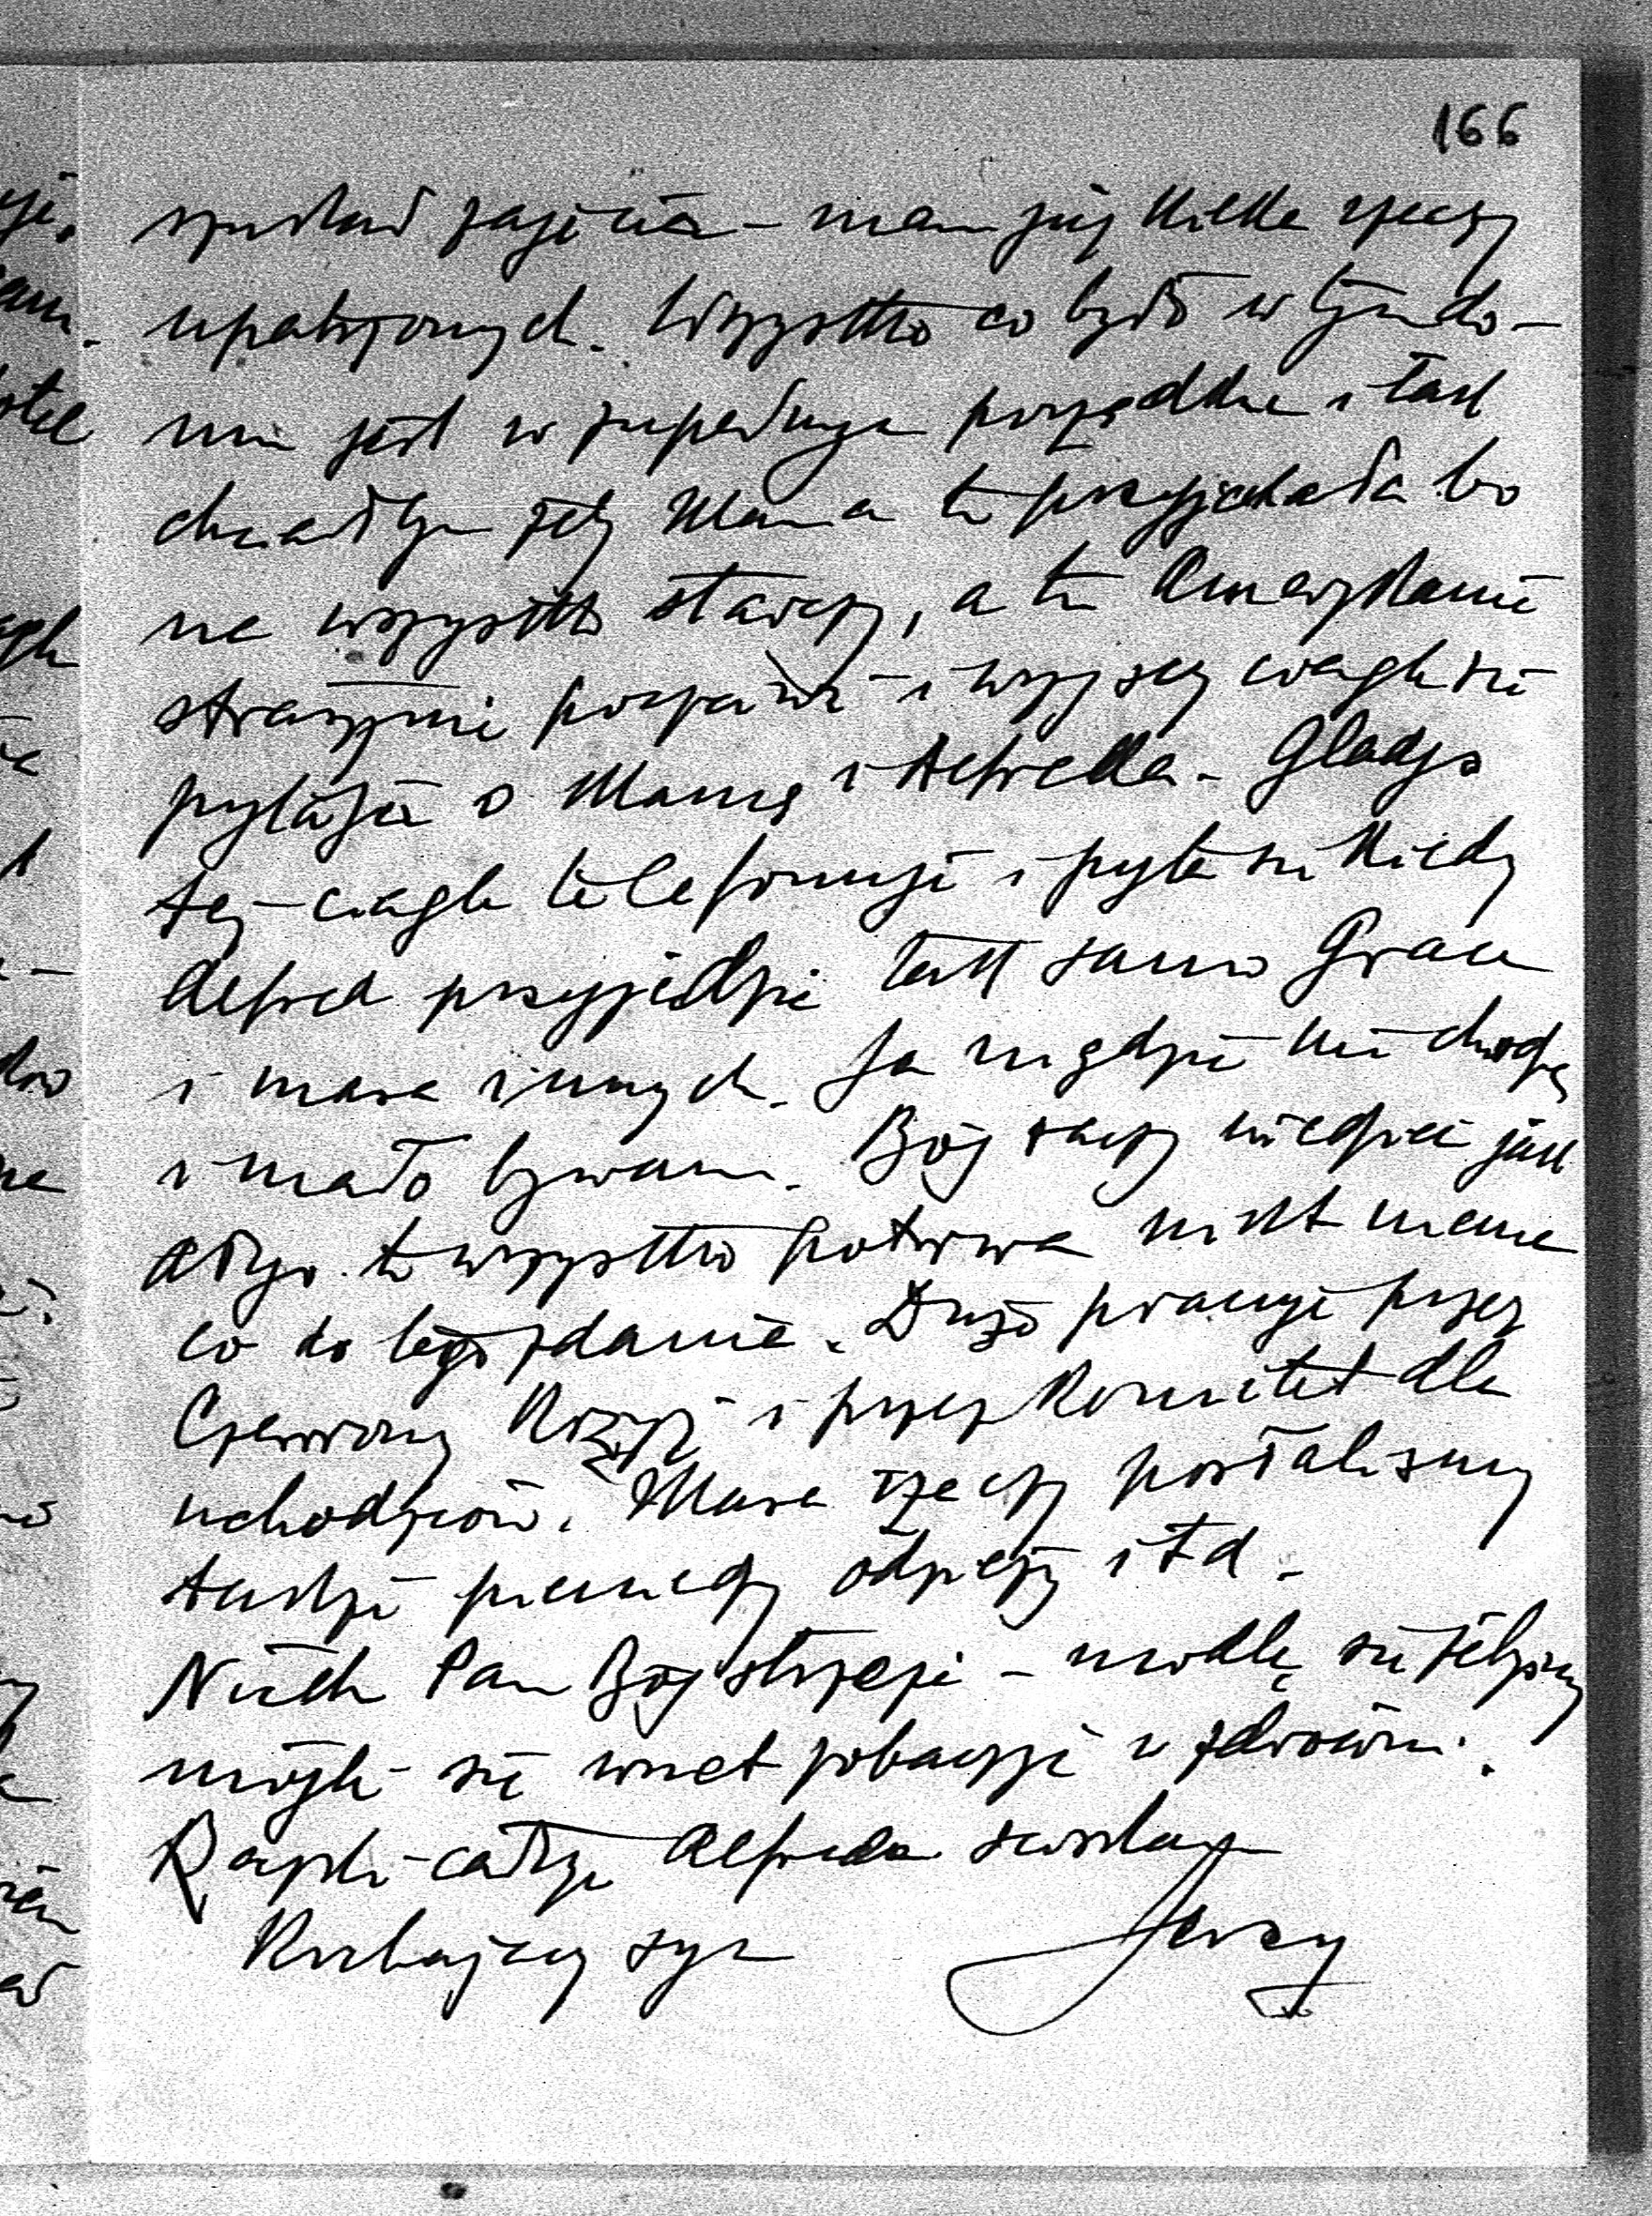 166
szukać zajęcia – mam już kilka rzeczy
upatrzonych. Wszystko co było w tym do-
mu jest w zupełnym porządku i tak
chciałbym żeby Mama tu przyjechała bo
na wszystko starczy, a tu Amerykanie
strasznie poczciwi i wszyscy ciągle się
pytają o Mamę i Alfreda – Gladys
też ciągle telefonuje i pyta się kiedy
Alfred przyjedzie tak samo Grace
i masa innych. Ja nigdzie nie chodzę
i mało bywam. Bóg raczy wiedzieć jak
długo to wszystko potrwa nikt nie ma
co do tego zdania. Dużo pracuję przez
Czerwony Krzyż i przez Komitet dla
uchodźców. Masa rzeczy posłaliśmy
tudzież pieniędzy odzieży i t d.
Niech Pan Bóg strzeże – modlę się żebyśmy
mogli się wnet zobaczyć w zdrowiu.
Rączki całuję Alfreda ściskam
Kochający syn Jerzy